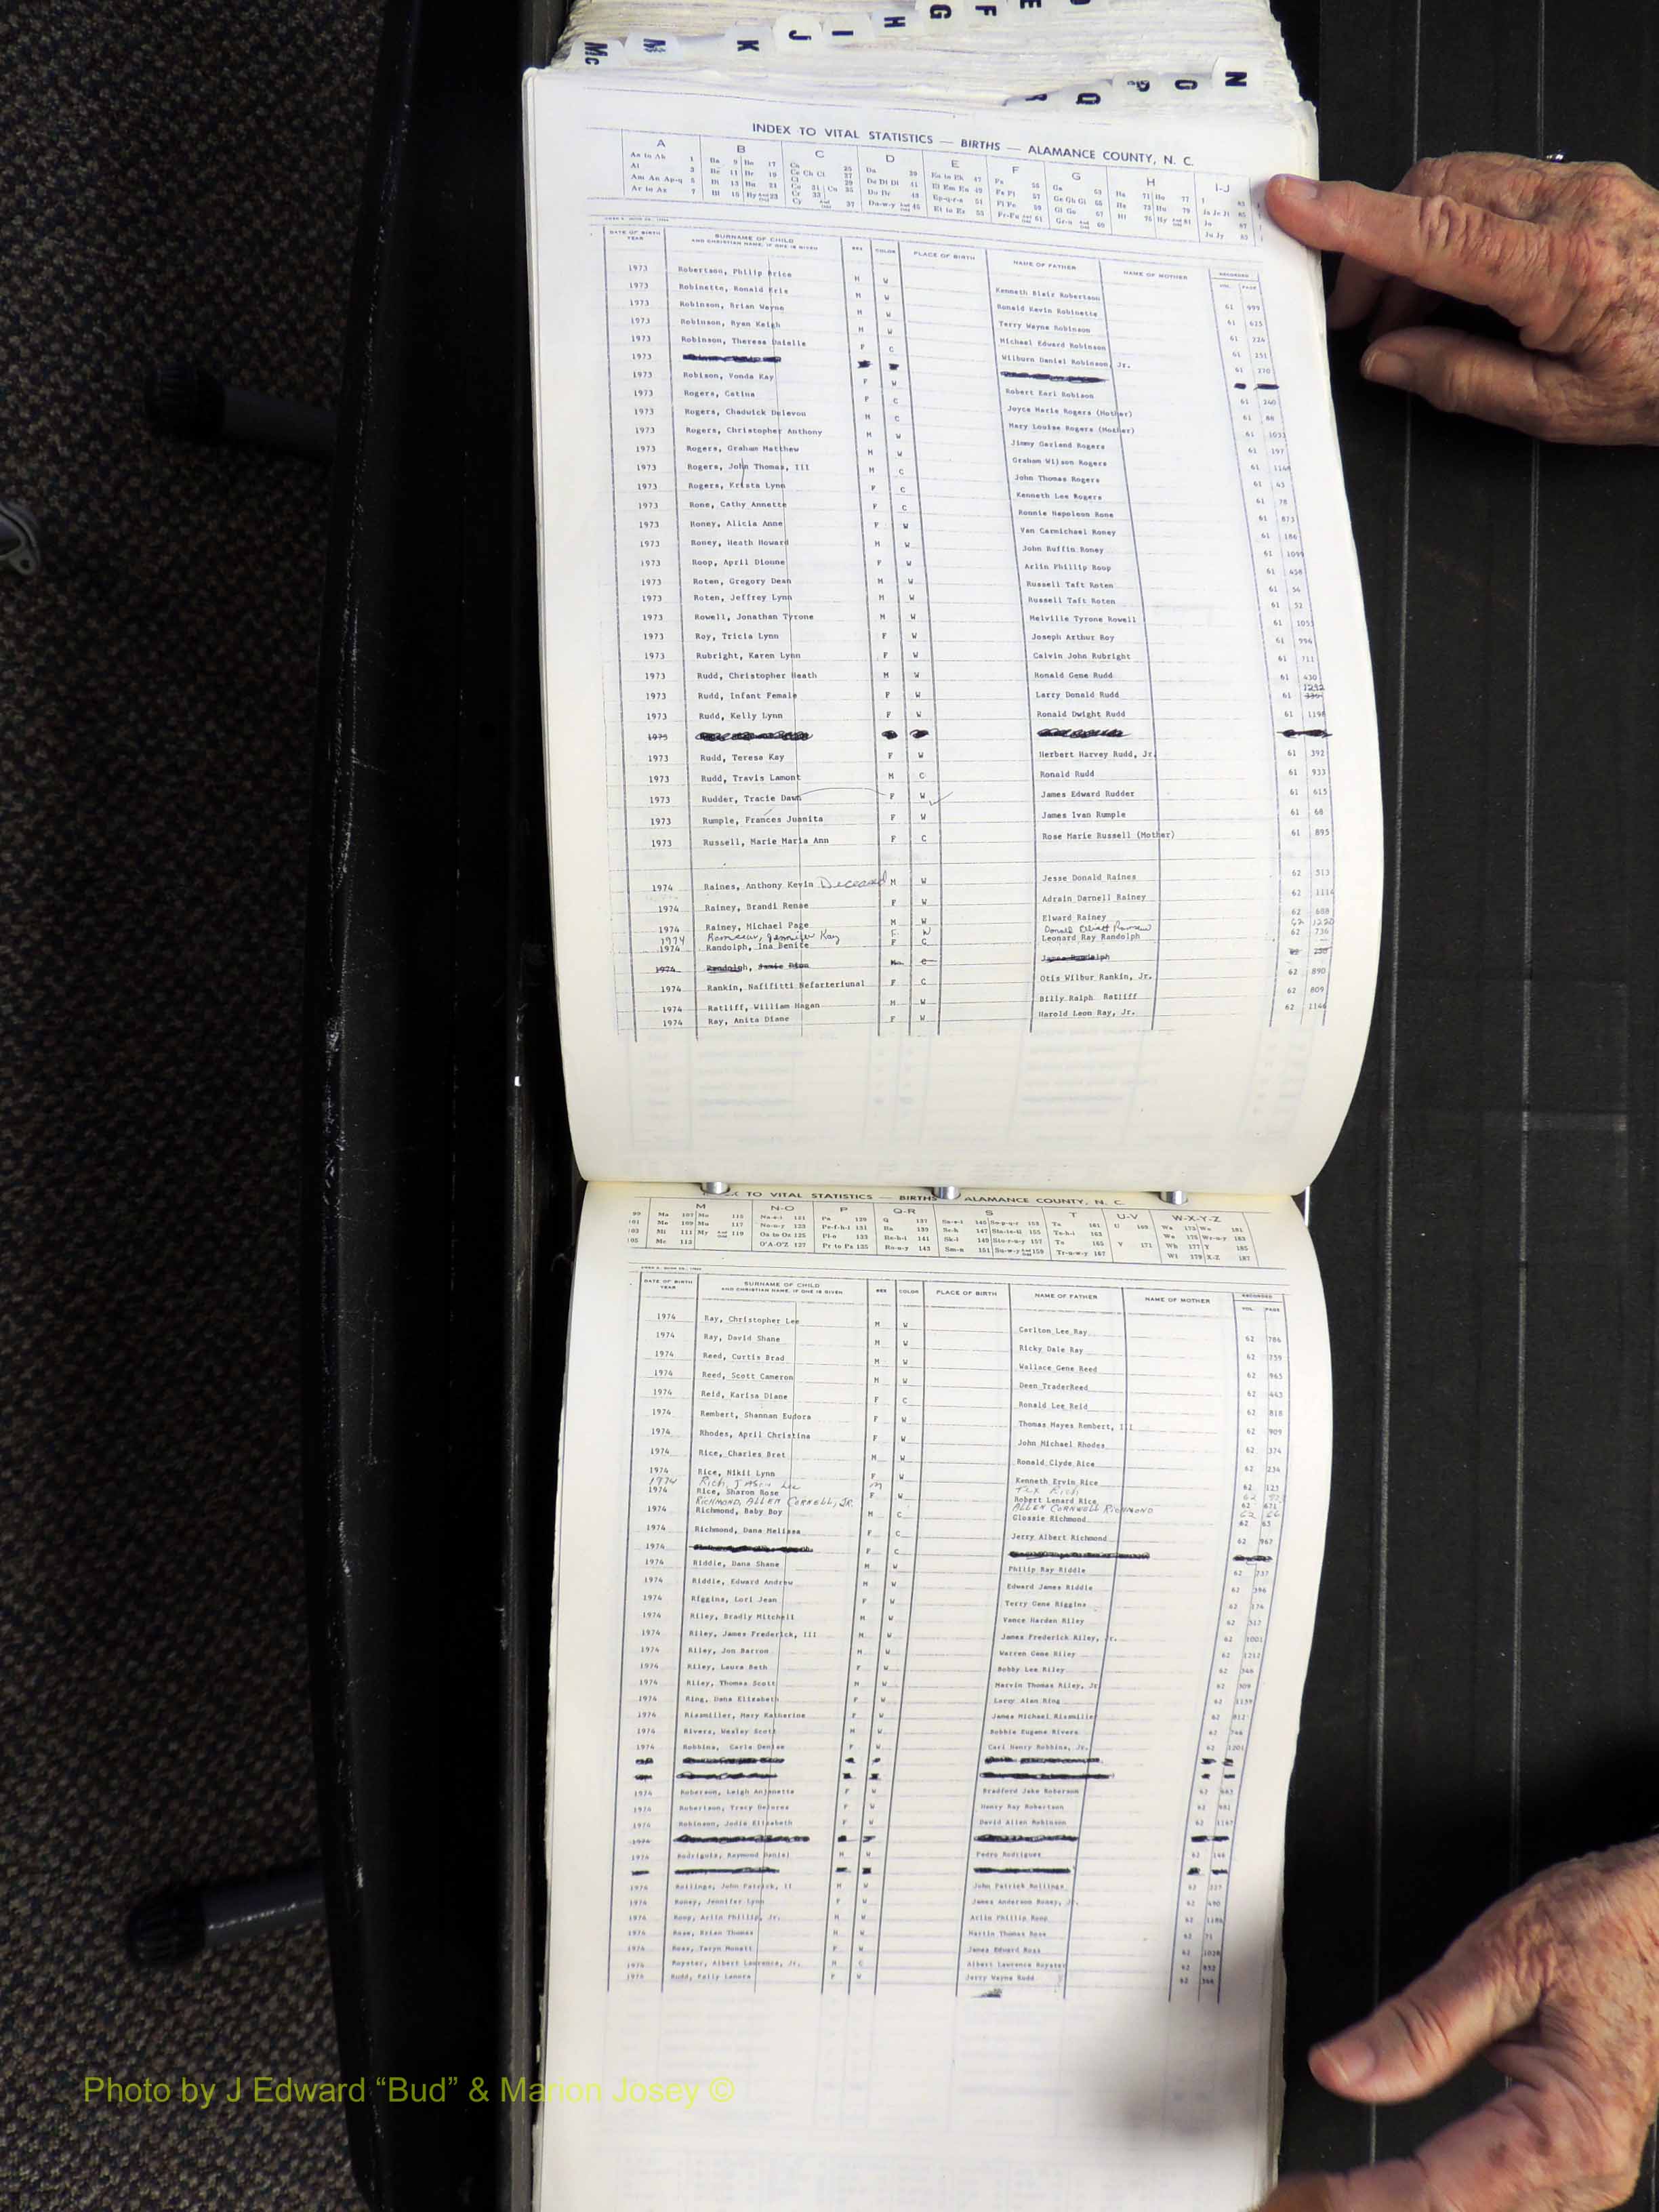 Mc M K J I H G F E D
R Q P O N
INDEX TO VITAL STATISTICS — BIRTHS — ALAMANCE COUNTY, N. C.
A B C D E F G H I-J
DATE OF BIRTH YEAR SURNAME OF CHILD AND CHRISTIAN NAME, IF ONE IS GIVEN SEX COLOR PLACE OF BIRTH NAME OF FATHER NAME OF MOTHER RECORDED VOL. PAGE
1973 Robertson, Philip Brice M W Kenneth Blair Robertson 61 999
1973 Robinette, Ronald Kris M W Ronald Kevin Robinette 61 625
1973 Robinson, Brian Wayne M W Terry Wayne Robinson 61 224
1973 Robinson, Ryan Keigh M W Michael Edward Robinson 61 251
1973 Robinson, Theresa Daielle F C Wilburn Daniel Robinson, Jr. 61 270
1973
1973 Robison, Vonda Kay F W Robert Earl Robison 61 240
1973 Rogers, Catina F C Joyce Marie Rogers (Mother) 61 88
1973 Rogers, Chadwick Delevon M C Mary Louise Rogers (Mother) 61 1033
1973 Rogers, Christopher Anthony M W Jimmy Garland Rogers 61 197
1973 Rogers, Graham Matthew M W Graham Wilson Rogers 61
1973 Rogers, John Thomas, III M C John Thomas Rogers 61 43
1973 Rogers, Krista Lynn F C Kenneth Lee Rogers 61 78
1973 Rone, Cathy Annette F C Ronnie Napoleon Rone 61 873
1973 Roney, Alicia Anne F W Van Carmichael Roney 61 186
1973 Roney, Heath Howard M W John Ruffin Roney 61 1099
1973 Roop, April Dionne F W Arlin Phillip Roop 61 458
1973 Roten, Gregory Dean M W Russell Taft Roten 61 54
1973 Roten, Jeffrey Lynn M W Russell Taft Roten 61 52
1973 Rowell, Jonathan Tyrone M W Melville Tyrone Rowell 61 1053
1973 Roy, Tricia Lynn F W Joseph Arthur Roy 61 994
1973 Rubright, Karen Lynn F W Calvin John Rubright 61 711
1973 Rudd, Christopher Heath M W Ronald Gene Rudd 61 430
1973 Rudd, Infant Female F W Larry Donald Rudd 61 1232
1973 Rudd, Kelly Lynn F W Ronald Dwight Rudd 61 1198
1973
1973 Rudd, Teresa Kay F W Herbert Harvey Rudd, Jr. 61 392
1973 Rudd, Travis Lamont M C Ronald Rudd 61 933
1973 Rudder, Tracie Dawn F W James Edward Rudder 61 615
1973 Rumple, Frances Juanita F W James Ivan Rumple 61 68
1973 Russell, Marie Maria Ann F C Rose Marie Russell (Mother) 61 895
1974 Raines, Anthony Kevin Deceased M W Jesse Donald Raines 62 513
1974 Rainey, Brandi Renae F W Adrain Darnell Rainey 62 1114
1974 Rainey, Michael Page M W Elward Rainey 62 688
1974 Ramseur, Jennifer Kay F W Donald Elliott Ramseur 62 1220
1974 Randolph, Ina Benite F C Leonard Ray Randolph 62 736
1974 Randolph, C James Randolph
1974 Rankin, Nafifitti Nefarteriunal F C Otis Wilbur Rankin, Jr. 62 890
1974 Ratliff, William Hagan M W Billy Ralph Ratliff 62 809
1974 Ray, Anita Diane F W Harold Leon Ray, Jr. 62 1146
INDEX TO VITAL STATISTICS — BIRTHS — ALAMANCE COUNTY, N. C.
M N-O P Q-R S T U-V W-X-Y-Z
DATE OF BIRTH YEAR SURNAME OF CHILD AND CHRISTIAN NAME, IF ONE IS GIVEN SEX COLOR PLACE OF BIRTH NAME OF FATHER NAME OF MOTHER RECORDED VOL. PAGE
1974 Ray, Christopher Lee M W Carlton Lee Ray 62 786
1974 Ray, David Shane M W Ricky Dale Ray 62 759
1974 Reed, Curtis Brad M W Wallace Gene Reed 62 965
1974 Reed, Scott Cameron M W Deen TraderReed 62 443
1974 Reid, Karisa Diane F C Ronald Lee Reid 62 818
1974 Rembert, Shannan Eudora F W Thomas Mayes Rembert, III 62 909
1974 Rhodes, April Christina F W John Michael Rhodes 62 374
1974 Rice, Charles Bret M W Ronald Clyde Rice 62 234
1974 Rice, Nikil Lynn F W Kenneth Ervin Rice 62 123
1974 Rich, Jason Lee M Tex Rich 62
1974 Rice, Sharon Rose F W Robert Lenard Rice 62 671
RICHMOND, ALLEN CORNELL, JR. ALLEN CORNELL RICHMOND 62 66
1974 Richmond, Baby Boy M C Glossie Richmond 62 65
1974 Richmond, Dana Melissa F C Jerry Albert Richmond 62 967
1974 F C
1974 Riddle, Dana Shane M W Philip Ray Riddle 62 737
1974 Riddle, Edward Andrew M W Edward James Riddle 62 396
1974 Riggins, Lori Jean F W Terry Gene Riggins 62 174
1974 Riley, Bradly Mitchell M W Vance Harden Riley 62 517
1974 Riley, James Frederick, III M W James Frederick Riley, Jr. 62 1001
1974 Riley, Jon Barron M W Warren Gene Riley 62 1212
1974 Riley, Laura Beth F W Bobby Lee Riley 62 346
1974 Riley, Thomas Scott M W Marvin Thomas Riley, Jr 62 309
1974 Ring, Dana Elizabeth F W Leroy Alan Ring 62 1159
1974 Rissmiller, Mary Katherine F W James Michael Rissmiller 62 812
1974 Rivers, Wesley Scott M W Bobbie Eugene Rivers 62
1974 Robbins, Carla Denise F W Carl Henry Robbins, Jr. 62 1201
1974 Roberson, Leigh Anjanette F W Bradford Jake Roberson 62
1974 Robertson, Tracy Delores F W Henry Ray Robertson 62
1974 Robinson, Jodie Elizabeth F W David Allen Robinson 62 1167
1974
1974 Rodriguis, Raymond Daniel M W Pedro Rodrigues 62
1974 Rollings, John Patrick, II M W John Patrick Rollings 62
1974 Roney, Jennifer Lynn F W James Anderson Roney, Jr. 62 490
1974 Roop, Arlin Phillip, Jr. M W Arlin Phillip Roop 62 1186
1974 Rose, Brian Thomas M W Martin Thomas Rose 62 71
1974 Ross, Taryn Monati F W James Edward Ross 62 1028
1974 Royster, Albert Lawrence, Jr. M C Albert Lawrence Royster 62 852
1974 Rudd, Fally Lenora F W Jerry Wayne Rudd 62
Photo by J Edward “Bud” & Marion Josey ©